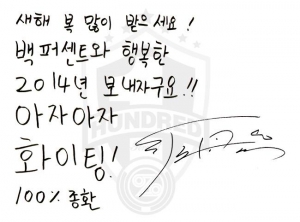 새해 복 많이 받은세요!
백퍼센트와 행복한
2014년 보내자구요!!
아자아자
화이팅!
100% 종환
HUNDRED